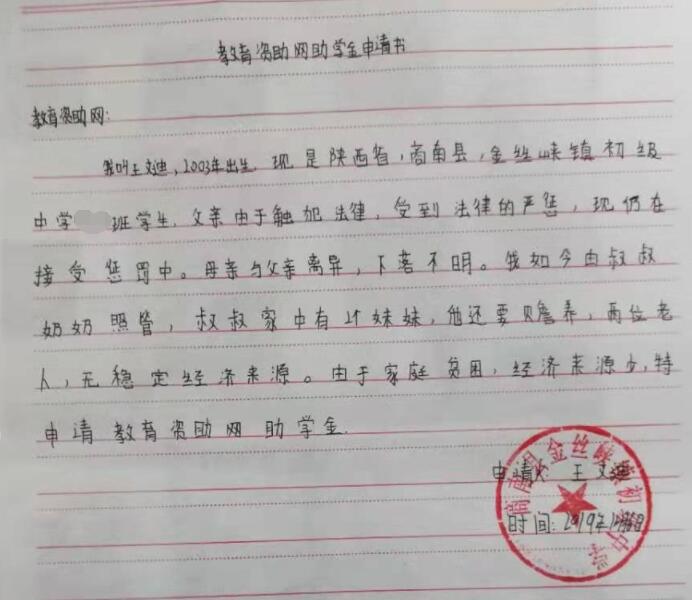 教育资助网助学金申请书
教育资助网:
我叫王文迪,2003年出生.现是陕西省,商南县,金丝峡镇初级
中学班学生.父亲由于触犯法律,受到法律的严惩,现仍在
接受惩罚中。母亲与父亲离异,下落不明。我如今由叔叔
奶奶照管,叔叔家中有2个妹妹,他还要赡养,两位老
人,无稳定经济来源。由于家庭贫困,经济来源少,特
申请教育资助网助学金.
申请人:王文迪
时间:2019年12月
商南县金丝峡镇初级中学